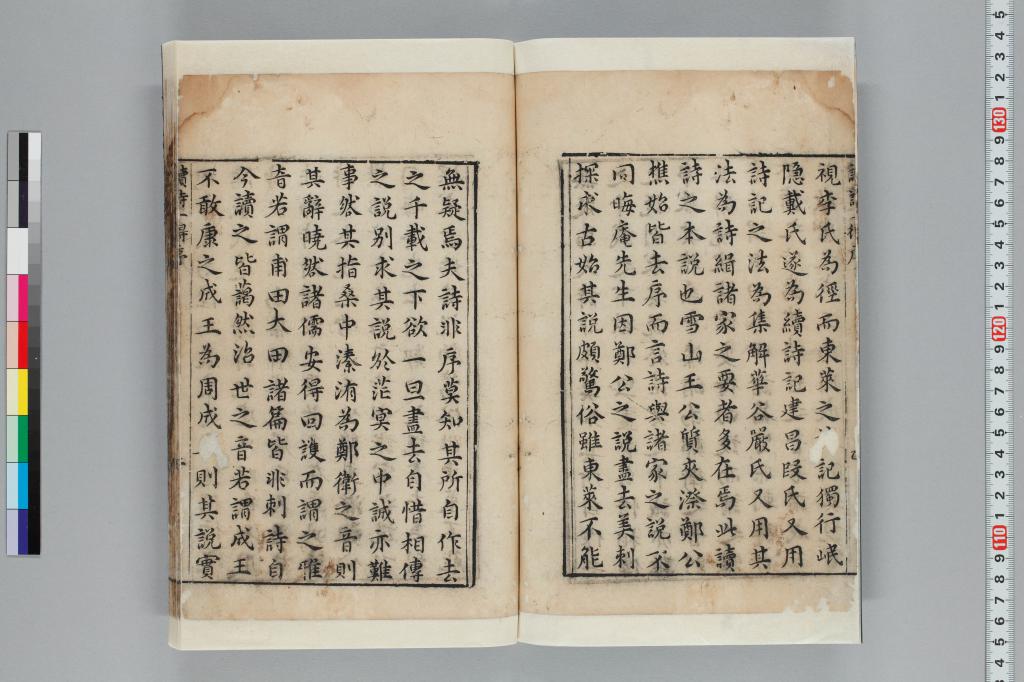 視李氏為徑而東萊之記獨行岷
隐戴氏遂為續詩記建昌叚氏又用
詩記之法為集解華谷嚴氏又用其
法為詩緝諸家之要者多在焉此讀
詩之本說也雪山王公質夾漈鄭公
樵始皆去序而言詩與諸家之說不
同晦庵先生因鄭公之說盡去美刺
探求古始其說頗驚俗雖東萊不能
無疑焉夫詩非序莫知其所自作去
之千載之下欲一旦盡去自惜相傳
之說別求其說於茫冥之中誠亦難
事然其指桑中溱洧為鄭衛之音則
其辭曉然諸儒安得回護而謂之雅
音若謂甫田大田諸篇皆非刺詩自
今讀之皆藹然治世之音若謂成王
不敢康之成王為周成則其說實
讀詩一得序
5 4 3 2 1 130 9 8 7 6 5 4 3 2 1 120 9 8 7 6 5 4 3 2 1 110 9 8 7 6 5 4